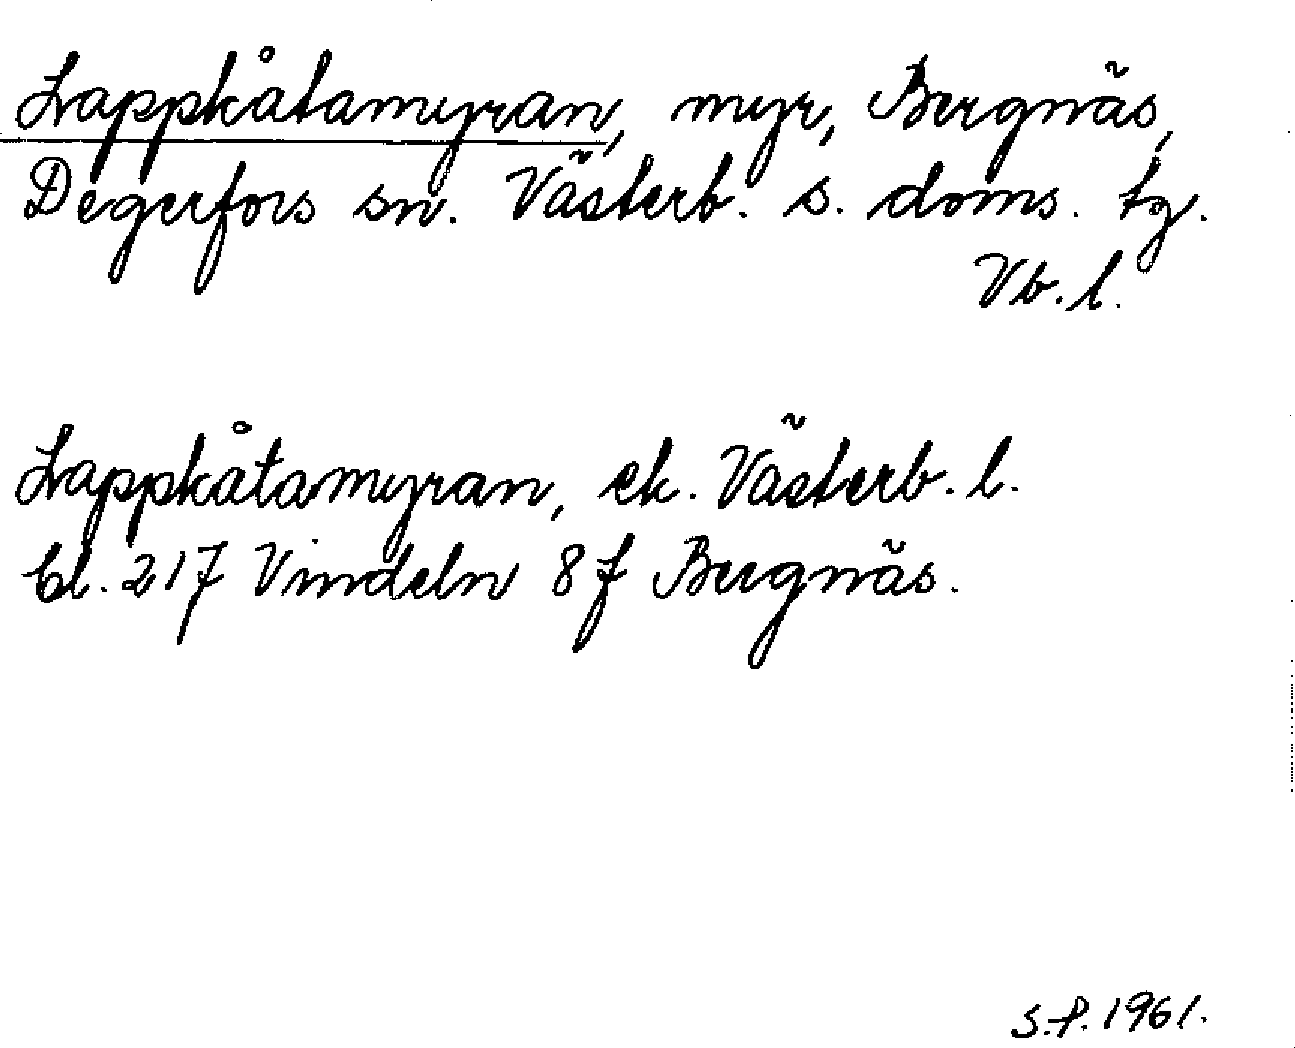 Lappkåtamyran, myr, Bergnäs,
Degerfors sn. Västerb. s. doms. tg.
Vb. l.
Lappkåtamyran, ek. Västerb. l.
bl. 217 Vindeln 8 f Bergnäs.
S.P. 1961.